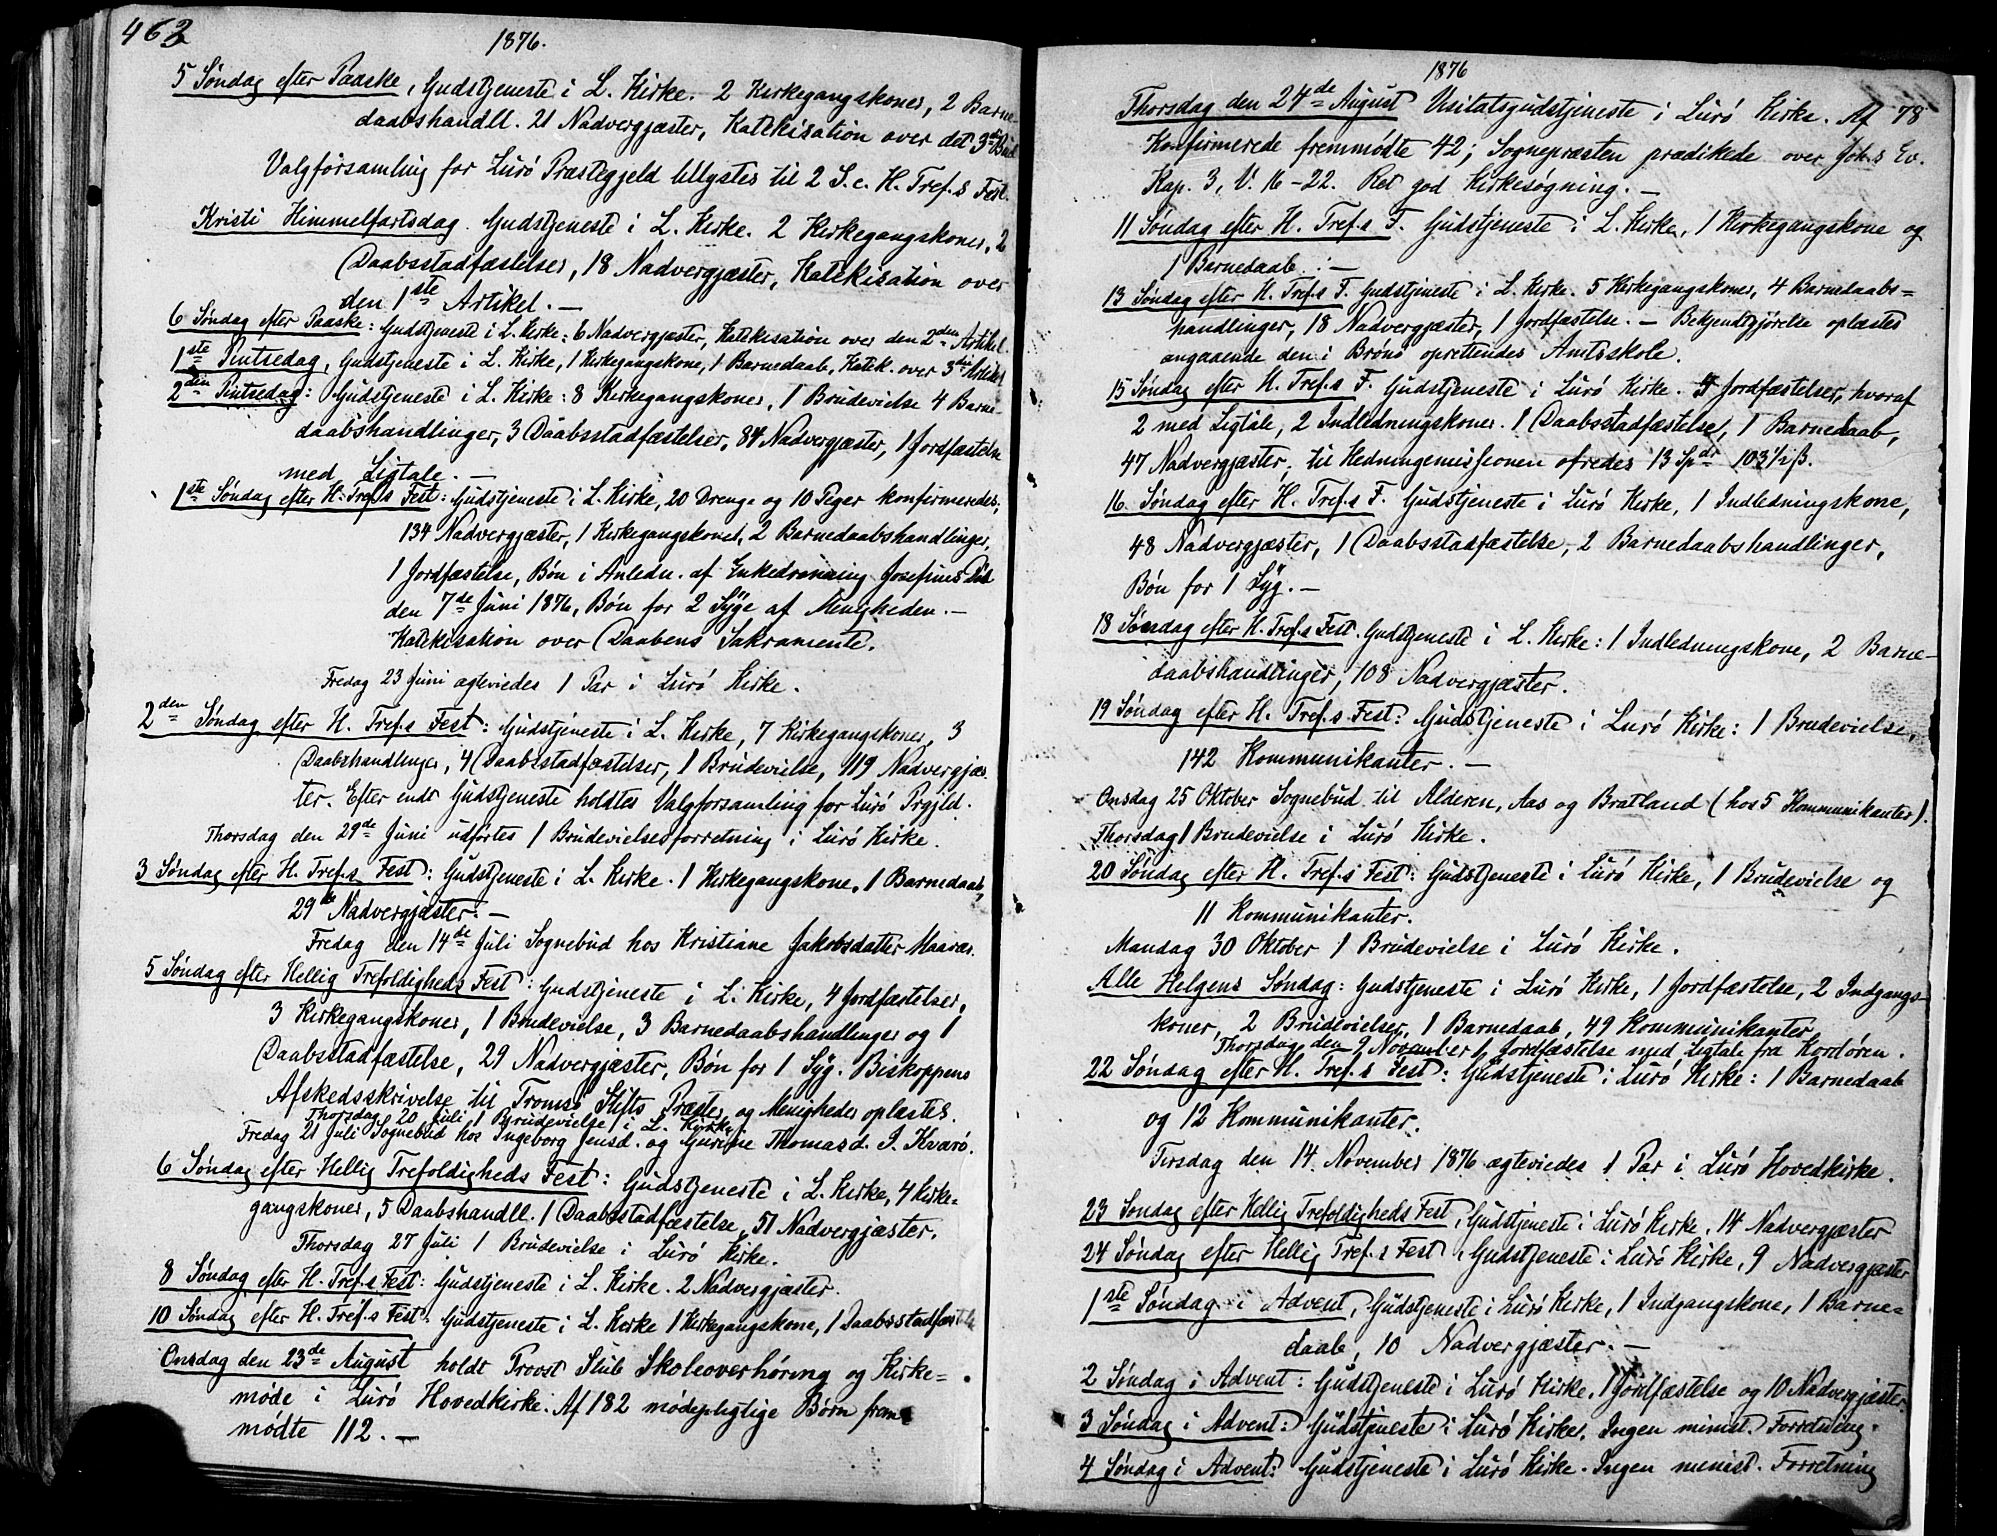 463
1876.
5 Søndag efter Paaske, Gudstjeneste i L. Kirke. 2 Kirkegangskoner, 2 Barne
daabshandll. 21 Nadvergjæster, Katekisation over det 3die Bud
Valgforsamling for Lurö Præstegjeld tillystes til 2 S. e. H. Tref.s Fest.
Kristi Himmelfartsdag. Gudstjeneste i L. Kirke. 2 Kirkegangskoner, 2
Daabsstadfæstelser, 18 Nadvergjæster, Katekisation over
den 1ste Artikel. —
6 Søndag efter Paaske: Gudstjeneste i L. Kirke: 6 Nadvergjæster, Katekisation over den 2den Artikel.
1ste Pintsedag, Gudstjeneste i L. Kirke, 1 Kirkegangskone, 1 Barnedaab, Katek. over 3die Artikel
2den Pintsedag: Gudstjeneste i L. Kirke: 8 Kirkegangskoner, 1 Brudevielse 4 Barne-
daabshandlinger, 3 Daabsstadfæstelser, 84 Nadvergjæster, 1 Jordfæsteln
med Ligtale. —
1ste Søndag efter H. Tref.s Fest: Gudstjeneste i L. Kirke, 20 Drenge og 10 Piger konfirmeredes,
134 Nadvergjæster, 1 Kirkegangskone, 2 Barnedaabshandlinger,
1 Jordfæstelse, Bön i Anledn. af Enkedronning Josefines Död
den 7de Juni 1876, Bön for 2 Syge af Menigheden. —
Katekisation over Daabens Sakramente.
Fredag 23 Juni ægteviedes 1 Par i Lurö Kirke.
2den Søndag efter H. Tref.s Fest: Gudstjeneste i L. Kirke, 7 Kirkegangskoner, 3
Daabshandlinger, 4 Daabsstadfæstelser, 1 Brudevielse, 119 Nadvergjæs
ter. Efter endt Gudstjeneste holdtes Valgforsamling for Lurö Prgjld.
Thorsdag den 29de Juni udförtes 1 Brudevielsesforretning i Lurö Kirke.
3 Søndag efter H. Tref.s Fest: Gudstjeneste i L. Kirke. 1 Kirkegangskone, 1 Barnedaab,
29 Nadvergjæster. —
Fredag den 14de Juli Sognebud hos Kristiane Jakobsdatter Maavær.
5 Søndag efter Hellig Trefoldigheds Fest: Gudstjeneste i L. Kirke, 4 Jordfæstelser,
3 Kirkegangskoner, 1 Brudevielse, 3 Barnedaabshandlinger og 1
Daabsstadfæstelse, 29 Nadvergjæster, Bön for 1 Syg. Biskoppens
Afskedsskrivelse til Tromsö Stifts Præster og Menigheder oplæstes.
Thorsdag 20 Juli 1 Brudevielse i L. Kirke
Fredag 21 Juli Sognebud hos Ingeborg Jensd. og Gurine Thomasd. I. Kvarö.
6 Søndag efter Hellig Trefoldigheds Fest: Gudstjeneste i L. Kirke, 4 Kirke-
gangskoner, 5 Daabshandll. 1 Daabsstadfæstelse, 51 Nadvergjæster.
Thorsdag 27 Juli 1 Brudevielse i Lurö Kirke.
8 Søndag efter H. Tref.s Fest: Gudstjeneste i L. Kirke. 2 Nadvergjæster.
10 Søndag efter H. Tref.s Fest: Gudstjeneste i L. Kirke 1 Kirkegangskone, 1 Daabsstadfæstelse
Onsdag den 23de August holdt Provst Stub Skoleoverhöring og Kirke=
möde i Lurö Hovedkirke. Af 182 mödepligtige Börn frem
mödte 112. —
1876
Thorsdag den 24de August Visitatsgudstjeneste i Lurö Kirke. Af 78
Konfirmerede fremmödte 42; Sognepræsten prædikede over Joh.s Ev.
Kap. 3, V. 16-22. Ret god Kirkesögning. —
11 Søndag efter H. Tref.s F. Gudstjeneste i L. Kirke, 1 Kirkegangskone og
1 Barnedaab. —
13 Søndag efter H. Tref.s F. Gudstjeneste i L. Kirke. 5 Kirkegangskoner, 4 Barnedaabs=
handlinger, 18 Nadvergjæster, 1 Jordfæstelse. — Bekjendtgjörelse oplæstes
angaaende den i Brönö oprettendes Amtsskole.
15 Søndag efter H. Tref.s F. Gudstjeneste i Lurö Kirke. 4 Jordfæstelser, hvoraf
2 med Ligtale, 2 Indledningskoner. 1 Daabsstadfæstelse, 1 Barnedaab,
47 Nadvergjæster, til Hedningemissionen ofredes 13 Spdr 103 1/2 ß.
16 Søndag efter H. Tref.s F. Gudstjeneste i Lurö Kirke, 1 Indledningskone,
48 Nadvergjæster, 1 Daabsstadfæstelse, 2 Barnedaabshandlinger,
Bön for 1 Syg. —
18 Søndag efter H. Tref.s Fest. Gudstjeneste i L. Kirke: 1 Indledningskone, 2 Barne-
daabshandlinger, 108 Nadvergjæster.
19 Søndag efter H. Tref.s Fest: Gudstjeneste i Lurö Kirke: 1 Brudevielse,
142 Kommunikanter. —
Onsdag 25 Oktober Sognebud til Alderen, Aas og Bratland (hos 5 Kommunikanter).
Thorsdag 1 Brudevielse i Lurö Kirke.
20 Søndag efter H. Tref.s Fest: Gudstjeneste i Lurö Kirke, 1 Brudevielse og
11 Kommunikanter.
Mandag 30 Oktober 1 Brudevielse i Lurö Kirke.
Alle Helgens Søndag: Gudstjeneste i Lurö Kirke, 1 Jordfæstelse, 2 Indgangs-
koner, 2 Brudevielser, 1 Barnedaab, 49 Kommunikanter.
Thorsdag den 9 November 1 Jordfæstelse med Ligtale fra Kordören.
22 Søndag efter H. Tref.s Fest: Gudstjeneste i Lurö Kirke: 1 Barnedaab
og 12 Kommunikanter.
Tirsdag den 14 November 1876 ægteviedes 1 Par i Lurö Hovedkirke.
23 Søndag efter Hellig Trefoldigheds Fest, Gudstjeneste i Lurö Kirke, 14 Nadvergjæster
24 Søndag efter Hellig Tref.s Fest, Gudstjeneste i Lurö Kirke, 9 Nadvergjæster
1ste Søndag i Advent, Gudstjeneste i Lurö Kirke, 1 Indgangskone, 1 Barne=
daab, 10 Nadvergjæster. —
2 Søndag i Advent: Gudstjeneste i Lurö Kirke, 1 Jordfæstelse og 10 Nadvergjæster.
3 Søndag i Advent: Gudstjeneste i Lurö Kirke. Ingen minist. Forretning.
4 Søndag i Advent: Gudstjeneste i Lurö Kirke. Ingen minist. Forretning